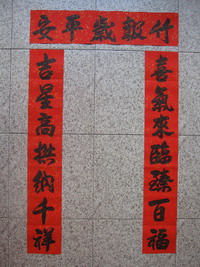 竹報歲平安
喜氣來臨臻百福
吉星高拱納千祥